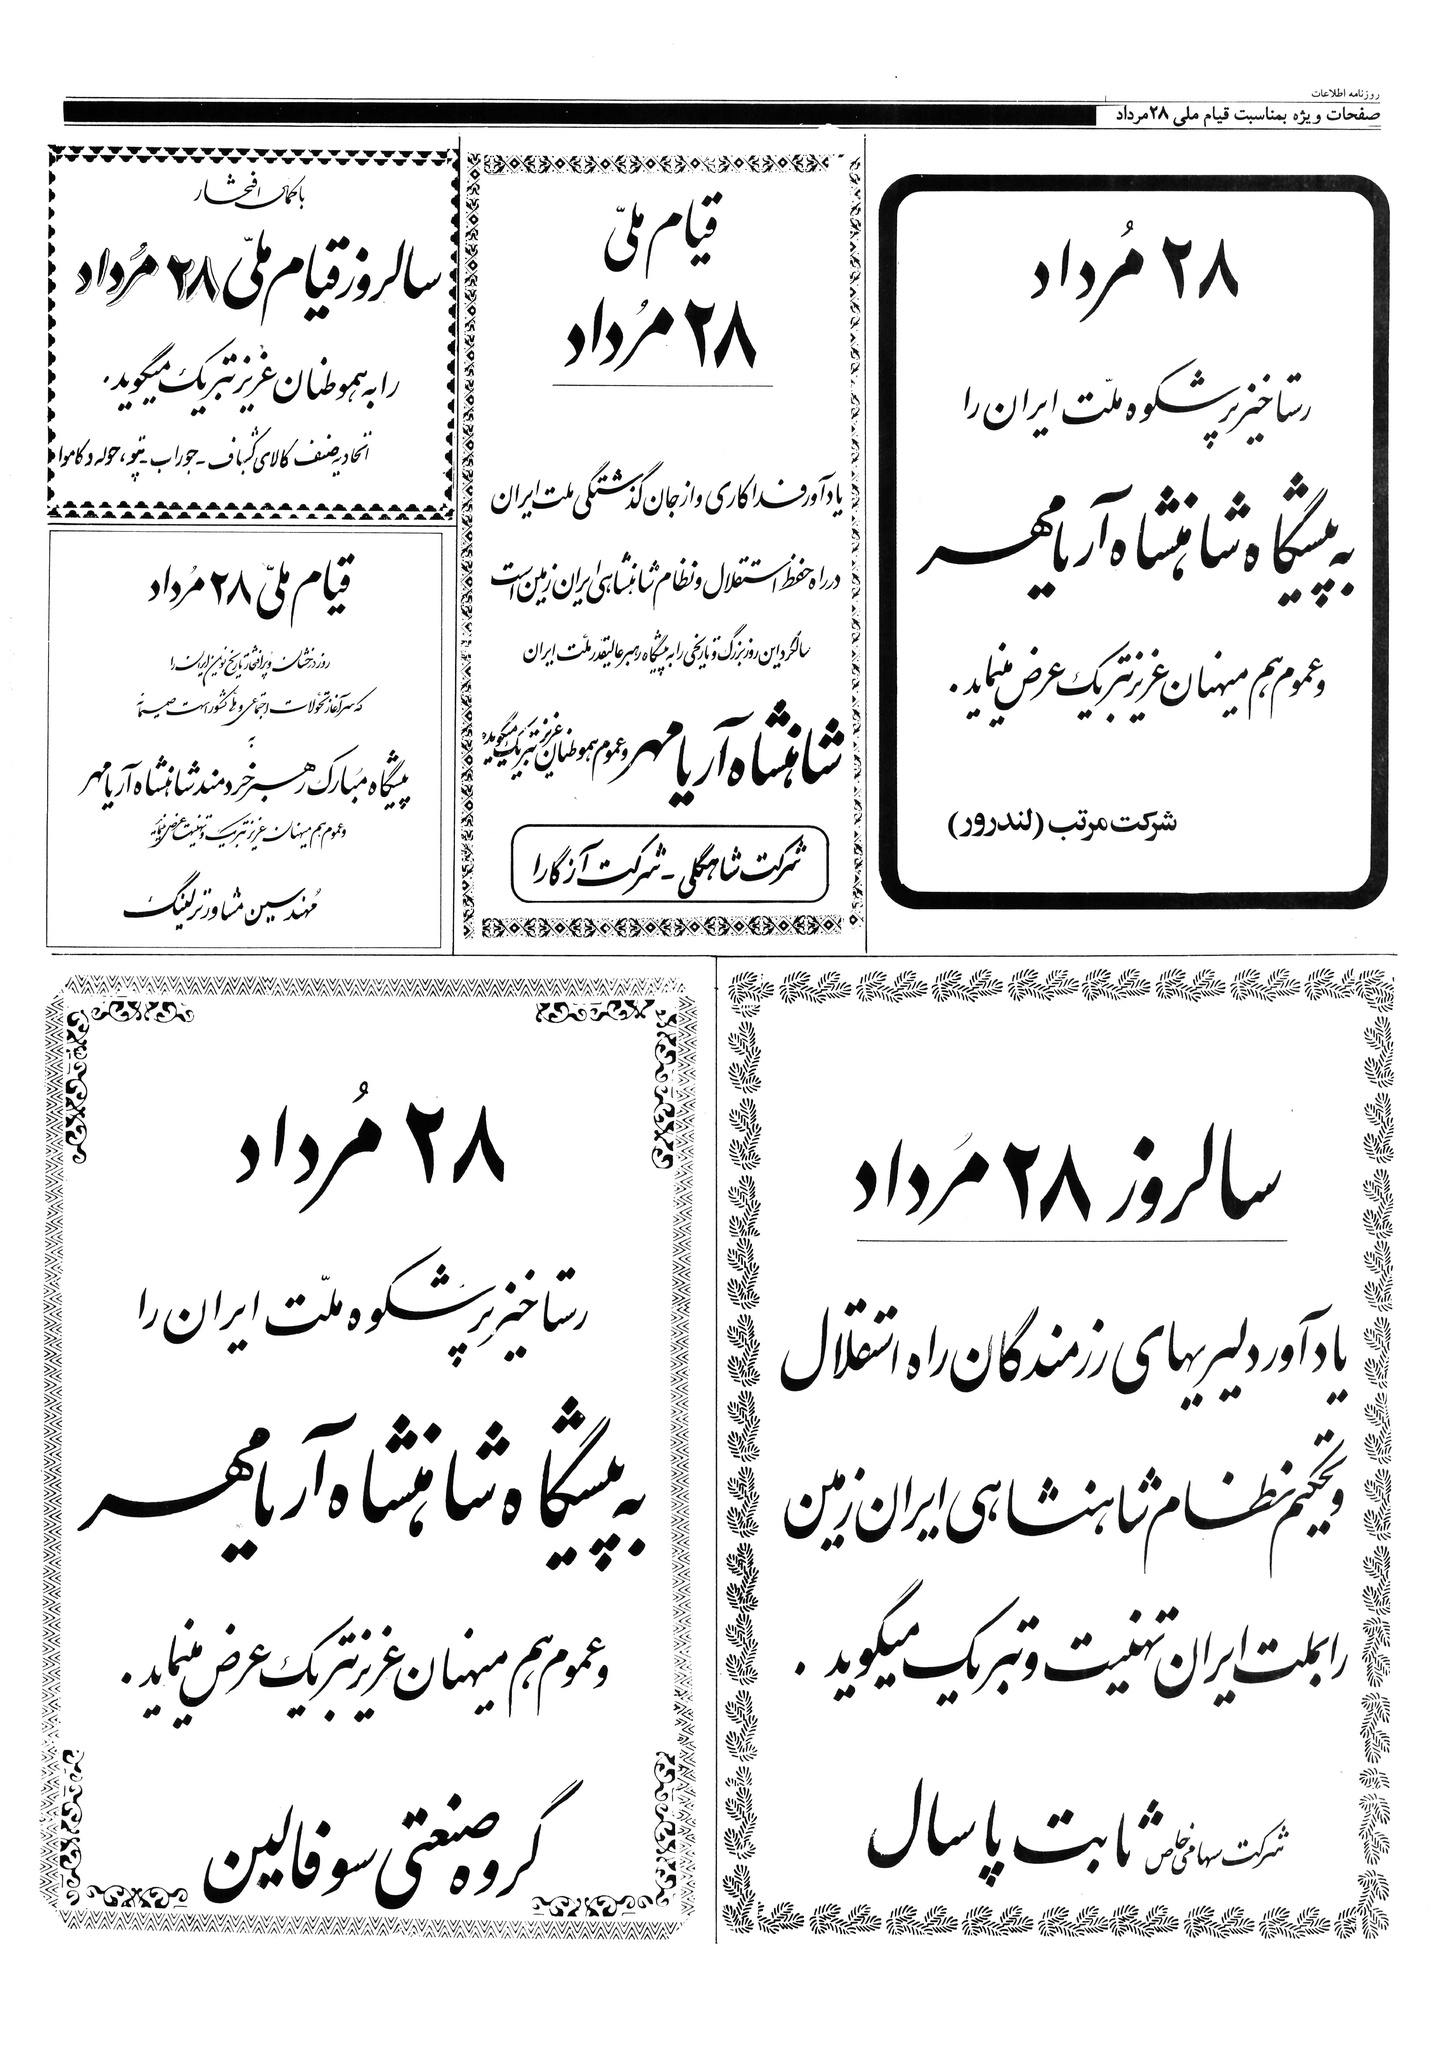 روزنامه اطلاعات
صفحات ویژه بمناسبت قیام ملی ۲۸مرداد
۲۸ مُرداد
رستاخیز پرشکوه ملّت ایران را
به پیشگاه شاهنشاه آریامهر
و عموم هم میهنان عزیز تبریک عرض مینماید.
شرکت مرتب (لندرور)
قیام ملیّ
۲۸ مُرداد
یادآور فداکاری و از جان گذشتگی ملت ایران
در راه حفظ استقلال و نظام شاهنشاهی ایران زمین است
سالگرد این روز بزرگ و تاریخی را به پیشگاه رهبر عالیقدر ملت ایران
شاهنشاه آریامهر و عموم هموطنان عزیز تبریک میگوید
شرکت شاهگلی - شرکت آزگارا
با کمال افتخار
سالروز قیام ملیّ ۲۸ مُرداد
را به هموطنان عزیز تبریک میگوید.
اتحادیه صنف کالای کشباف - جوراب - پتو، حوله و کاموا
قیام ملیّ ۲۸ مُرداد
روز درخشان و پرافتخار تاریخ نوین ایران را
که سرآغاز تحولات اجتماعی و ملی کشور است صمیمانه
به
پیشگاه مبارک رهبر خردمند شاهنشاه آریامهر
و عموم هم میهنان عزیز تبریک و تهنیت عرض مینماید
مُهندسین مشاور ترلینگ
سالروز ۲۸ مُرداد
یادآور دلیریهای رزمندگان راه استقلال
و تحکیم نظام شاهنشاهی ایران زمین
را بملت ایران تهنیت و تبریک میگوید.
شرکت سهامی خاص ثابت پاسال
۲۸ مُرداد
رستاخیز پرشکوه ملّت ایران را
به پیشگاه شاهنشاه آریامهر
و عموم هم میهنان عزیز تبریک عرض مینماید.
گروه صنعتی سوفالین